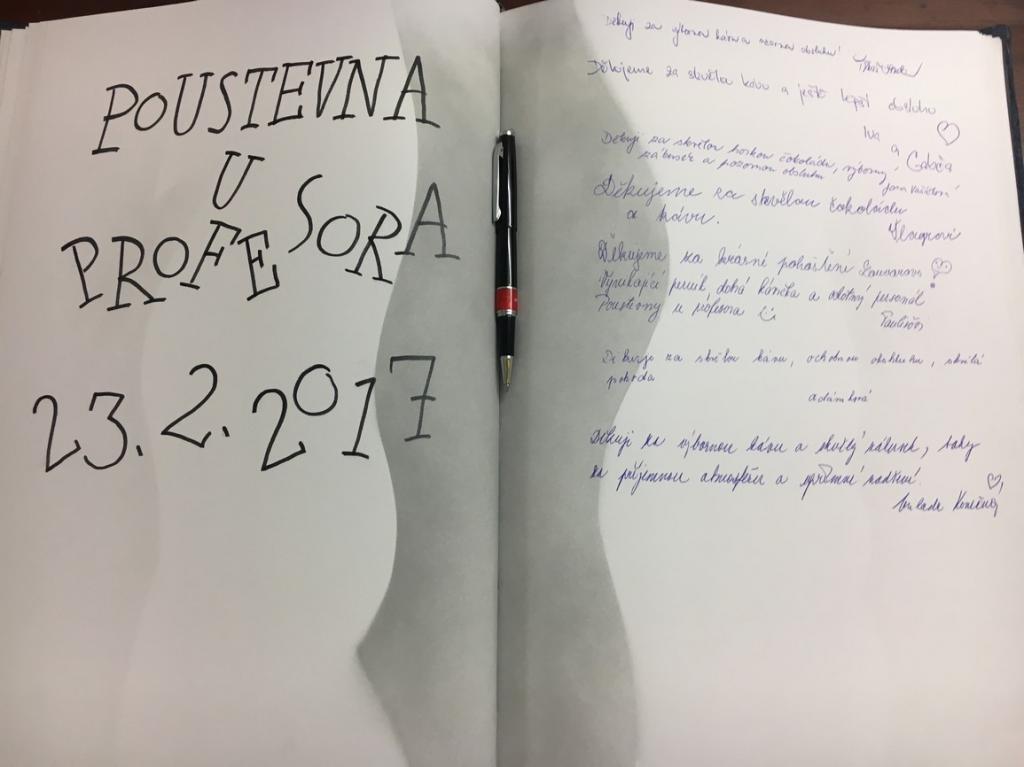 POUSTEVNA
U
PROFESORA
23. 2. 2017
Děkuji za výbornou kávu a obsluhu!
Děkujeme za skvělou kávu a ještě lepší obsluhu
Iva a
Děkuji za skvělou horkou čokoládu, výborný
zákusek a pozornou obsluhu Jana
Děkujeme za skvělou čokoládu
a kávu.
Děkujeme za krásné pohoštění
Vynikající perník dobrá kávička a personál
Poustevny u profesora
Děkuji za skvělou kávu, ochotnou obsluhu, skvělá
pohoda
Děkuji za výbornou kávu a skvělý zákusek, taky
za příjemnou atmosféru a
Konečná